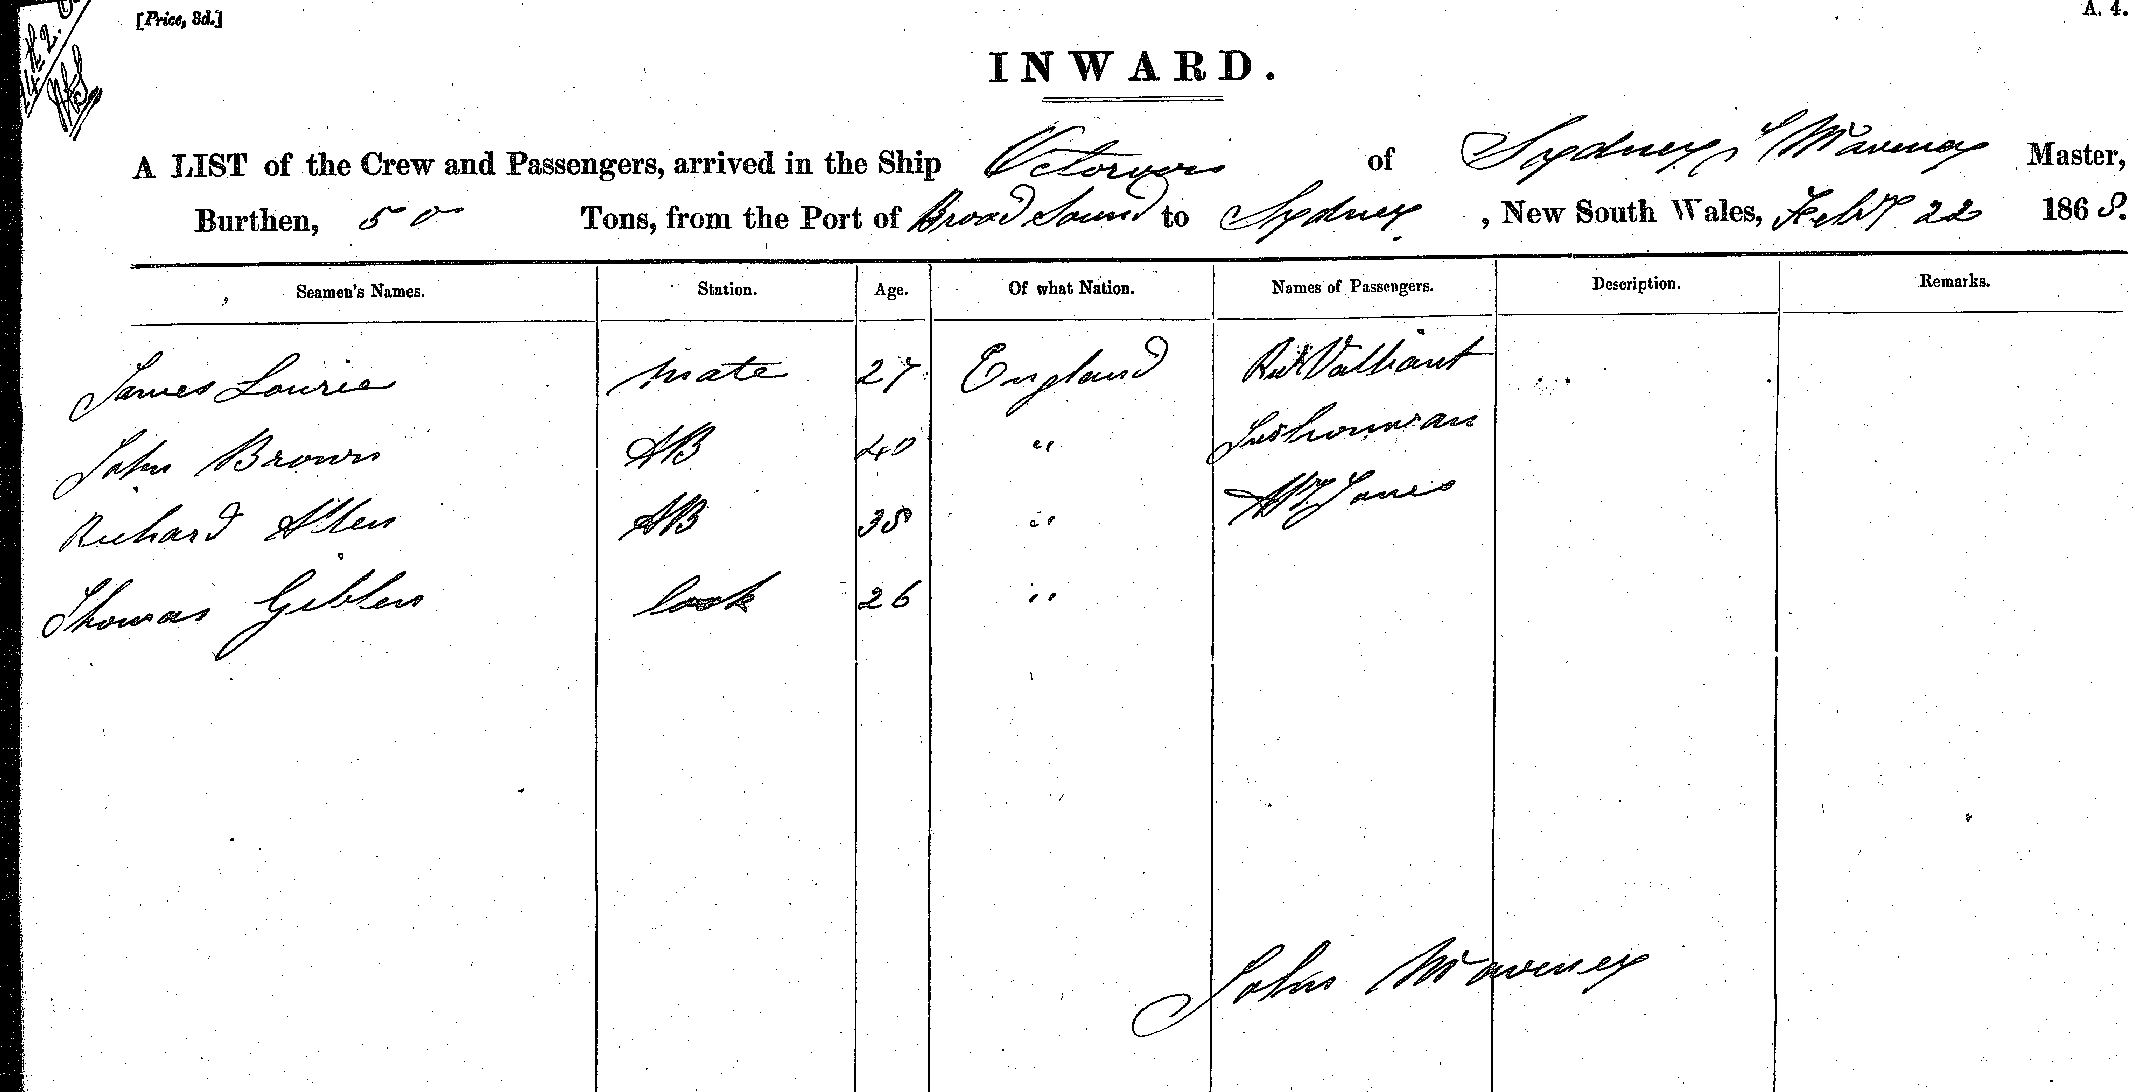 [Price, 3d.]
A. 4.
INWARD.
A LIST of the Crew and Passengers, arrived in the Ship of Sydney, J Maviney Master,
Burthen, 50 Tons, from the Port of Broad Sound to Sydney, New South Wales, Feby 22 1868.
Seamen's Names. Station. Age. Of what Nation. Names of Passengers. Description. Remarks.
James Lourie mate 27 England Rd Valliant
John Brown AB 40 "
Richard Allen AB 38 " Wm Jones
Thomas Giblen Cook 26 "
John Maviney